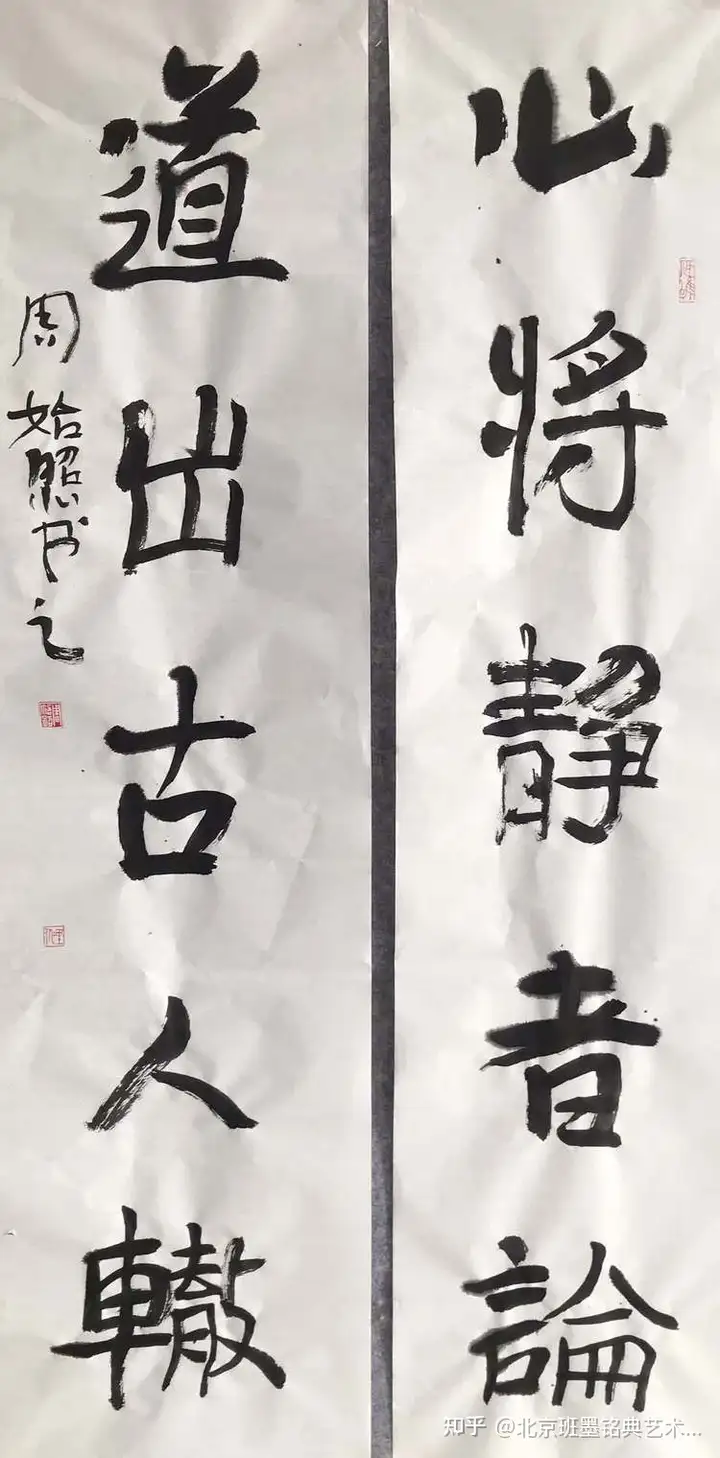 心将静者論
道出古人轍
周始照书之
知乎 @北京班墨铭典艺术...